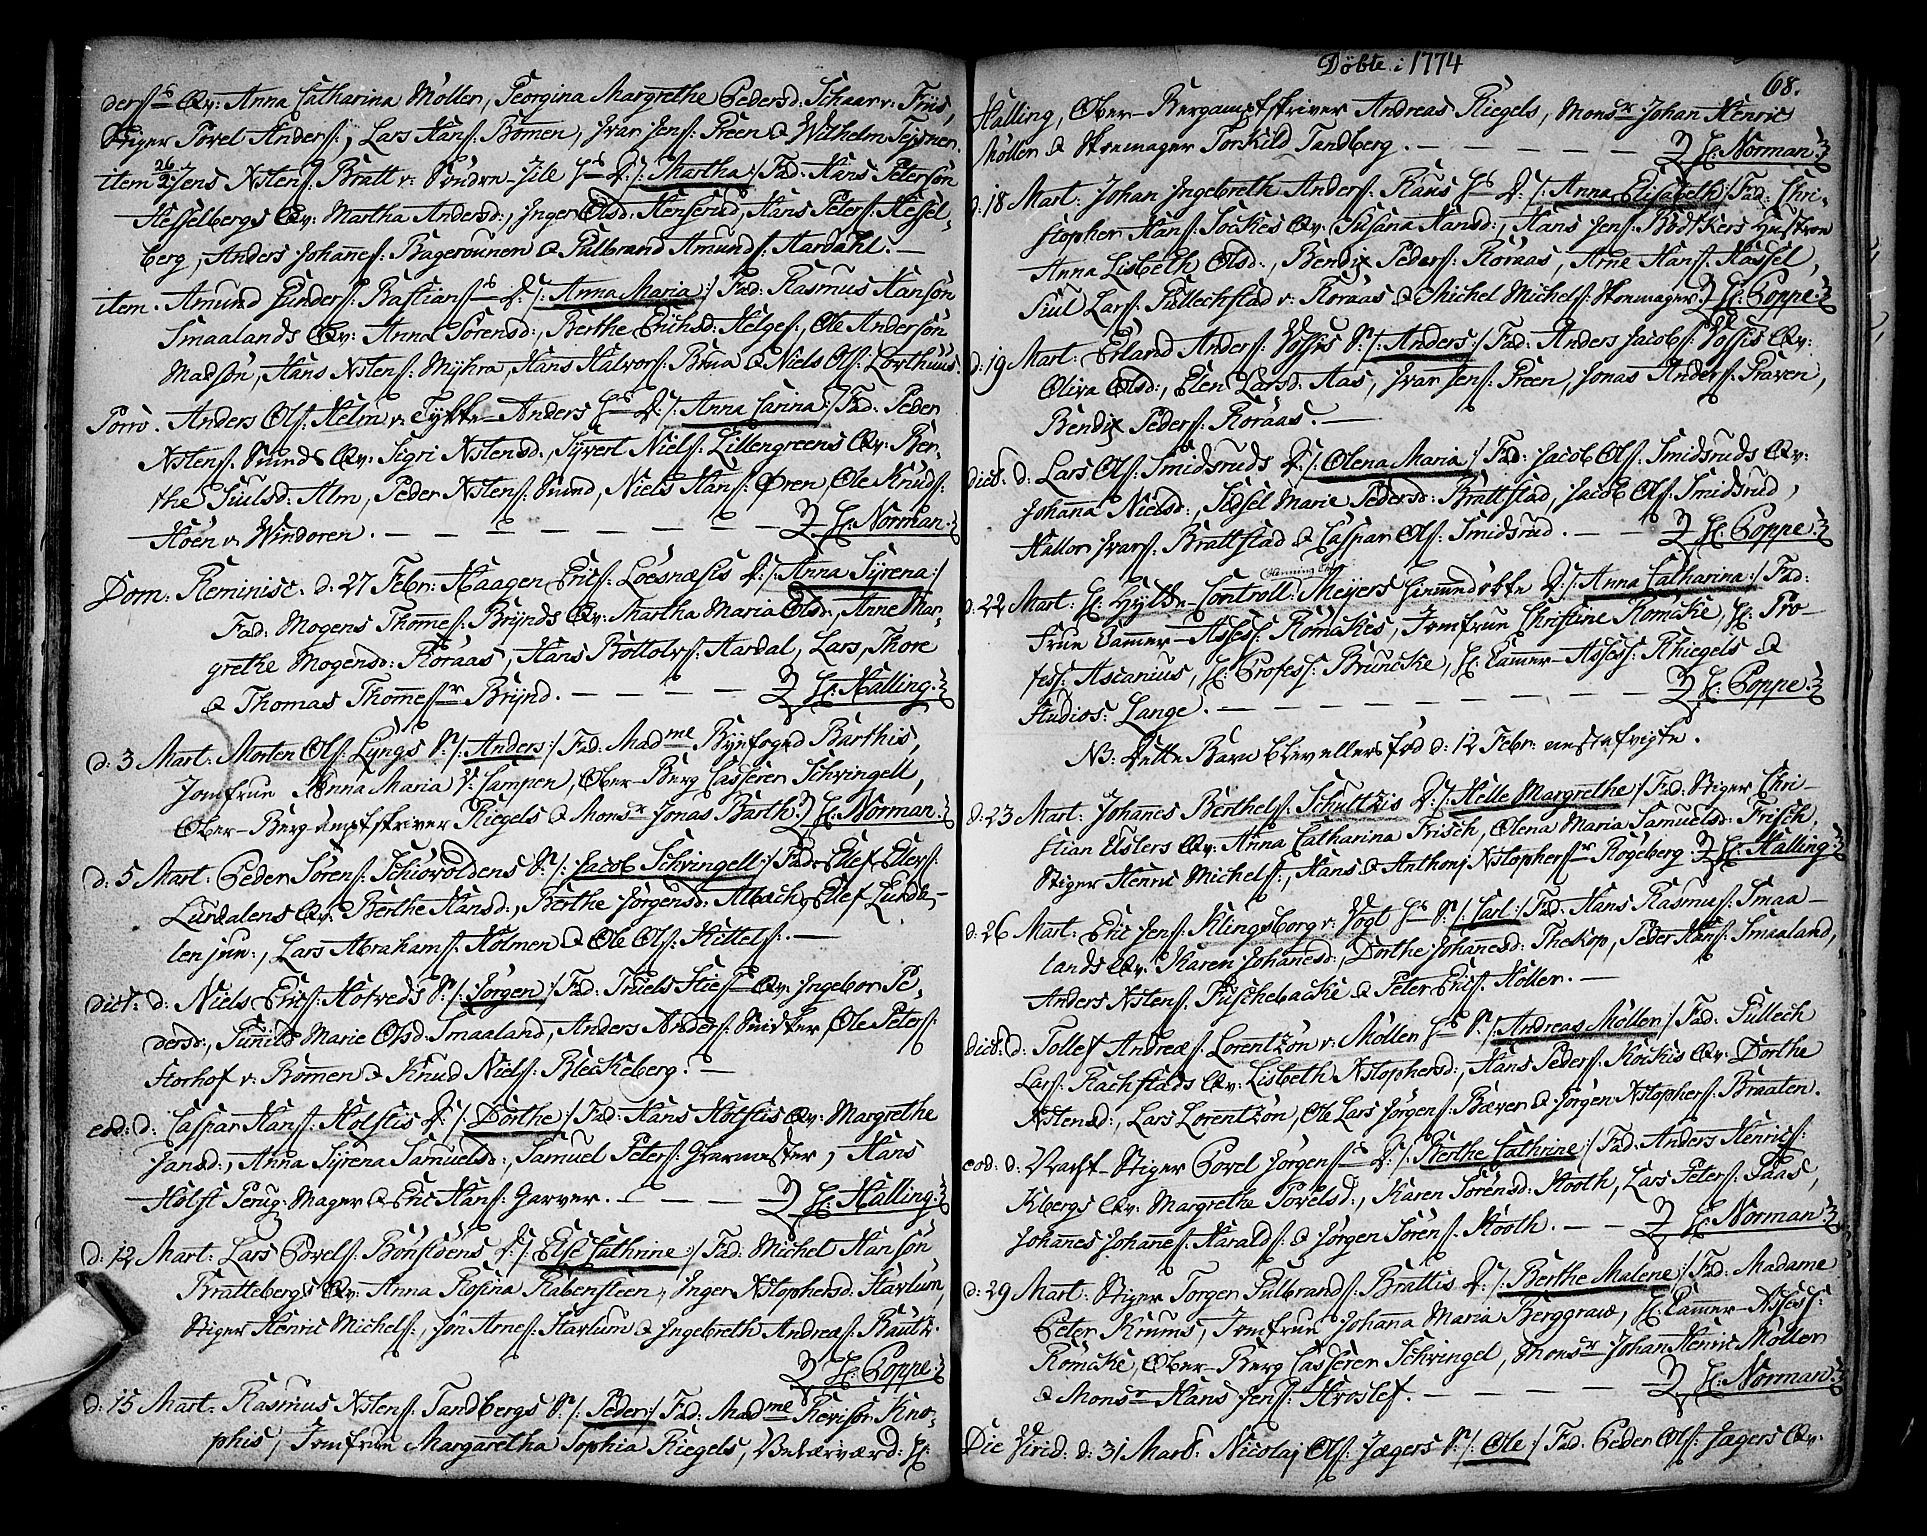 ders: Qv: Anna Catharina Möller, Georgina Margrethe Pedersd: Schaar v: Friis,
Stiger Povel Anders:, Lars Hans: Bömen, Ivar Jens: Preen & Wilhelm Teisner.
item 26/2 Jens Xstens: Bratt v: Söndre- D: /: Martha :/ Fad: Hans Peterson
Hesselbergs Qv: Martha Andersd:, Inger Olsd: Henserud, Hans Peters: Hessel-
berg, Anders Johannes: Bagerounen & Gulbrand Amunds: Hardahl. —
item. Amund Gunders: Bastians: D: /: Anna Maria :/ Fad: Rasmus Hanson
Smaalands Qv: Anna Sörensd:, Berthe Erichsd: Helges:, Ole Anderson
Madson, Hans Xstens: Myhra, Hans Halvors: Brua & Niels Ols: Lorthuus.
Porro. Anders Ols: Helm v: Anders D: /: Anna Carina :/ Fad: Peder
Xstens: Sunds Qv: Sigri Xstensd:, Syvert Niels: Lillengreens Qv: Ber-
the Juulsd: Alm, Peder Xstens: Sund, Niels Hans: Ören, Ole Knuds:
Hoen v: Windoren. — — — — — H: Norman.
Dom: Reminisc: d: 27 Febr: Haagen Erics: Loesnæsis D: /: Anna Syrena :/
Fad: Mogens Thomes: Brynds Qv: Martha Maria Olsd:, Anne Mar-
grethe Mogensd: Koraas, Hans Bottolvs: Hardal, Lars, Thore
& Thomas Thomes: Brynd. — — — — H: Halling.
d: 3 Mart: Morten Ols: Lyngs S: /: Anders :/ Fad: Madme Byefoged Barthis,
Jomfrue Anna Maria v: Campen, Ober-Berg Casserer Schvingell,
Ober-Bergamptskriver Riegels & Monsr Jonas Barth. H: Norman.
d: 5 Mart: Peder Sörens: Schiövoldens S: /: Jacob Schvingell :/ Fad: Ellef Ellefs:
Lurdalens Qv: Berthe Hansd:, Berthe Jörgensd: Albach, Ellef Lurda-
len jun:, Lars Abrahams: Holmen & Ole Ols: Kittels: —
dict: d: Niels Erics: Hofveds S: /: Jörgen :/ Fad: Truels Qv: Ingebor Pe-
dersd:, Gunild Marie Olsd: Smaaland, Anders Anders: Snidker, Ole Peters:
Storhof v: Bömen & Knud Niels: Bleckeberg. —
eod: d: Caspar Hans: Holstis D: /: Dorthe :/ Fad: Hans Holstis Qv: Margrethe
Jansd:, Anna Syrena Samuelsd:, Samuel Peters: Garmester, Hans
Holst Peruq: Mager & Eric Hans: Garver. — — — H: Halling.
d: 12 Mart: Lars Povels: Bönsdens D: /: Else Cathrine :/ Fad: Michel Hanson
Brattebergs Qv: Anna Rosina Rabensteen, Inger Xstophersd: Havlum,
Stiger Henric Michels:, Jon Arnes: Havlum & Ingebreth Andreæs: Bautz.
H: Poppe.
d: 15 Mart: Rasmus Xstens: Tandbergs S: /: Peder :/ Fad: Madme Revisor Kno-
phis, Jomfrue Margaretha Sophia Riegels, Velærværd: H:
Döbte i 1774
68.
Halling, Ober-Bergamptskriver Andreas Riegels, Monsr Johan Henric
Möller & Skomager Torkild Tandberg. — — — — H: Norman.
d: 18 Mart: Johan Ingebreth Anders: Raus D: /: Anna Elisabeth :/ Fad: Chri-
stopher Hans: Sockes Qv: Susana Hansd:, Hans Jens: Bödtkers Hustroe
Anna Lisbeth Olsd:, Bendix Peders: Koraas, Arne Hans: Hassel,
Juul Lars: Gullechstad v: Koraas & Michel Michels: Skomager. H: Poppe.
d: 19 Mart: Erland Anders: Vossis S: /: Anders :/ Fad: Anders Jacobs: Vossis Qv:
Oliva Olsd:, Elen Larsd: Aas, Ivar Jens: Preen, Jonas Anders: Graven,
Bendix Peders: Koraas. —
dict: d: Lars Ols: Smidsruds D: /: Olena Maria :/ Fad: Jacob Ols: Smidsruds Qv:
Johana Nielsd:, Sidsel Marie Pedersd: Brattstad, Jacob Ols: Smidsrud,
Hallor Ivars: Brattstad & Caspar Ols: Smidsrud. — — H: Poppe.
d: 22 Mart: H: Hytte-Controll: Meyers Hiemmedöbte D: /: Anna Catharina :/ Fad:
Frue Cammer-Assess: Römckes, Jomfrue Christine Römcke, H: Pro-
fess: Ascanius, H: Profess: Bruncke, H: Cammer-Assess: Rhiegels &
Studios: Lange. — — — — — — H: Poppe.
NB: Dette Barn blev ellers fød d: 12 Febr: nestafvigte.
d: 23 Mart: Johanes Berthels: Schultzis D: /: Helle Margrethe :/ Fad: Stiger Chri-
stian Elsters Qv: Anna Catharina Frisch, Olena Maria Samuelsd: Frisch,
Stiger Henric Michels:, Hans & Anthonj Xstophers: Rögeberg. H: Halling.
d: 26 Mart: Eric Jens: Klingsborg v: Vogt S: /: Carl :/ Fad: Hans Rasmus: Smaa-
lands Qv: Karen Johanesd:, Dorthe Johanesd: Theskop, Peder Hans: Smaaland,
Anders Xstens: Fuschebacke & Peter Erics: Holler. —
dict: d: Tollef Andreæs: Lorentzön v: Möller S: /: Andreas Möller :/ Fad: Gullech
Lars: Rachstads Qv: Lisbeth Xstophersd:, Hans Peders: Kockis Qv: Dorthe
Xstensd:, Lars Lorentzön, Ole Lars Jörgens: Bæver & Jörgen Xstophers: Braaten.
eod: d: Vacht-Stiger Povel Jörgens: D: /: Berthe Cathrine :/ Fad: Anders Henrics:
Kbergs Qv: Margrethe Povelsd:, Karen Sörensd: Hooth, Lars Peters: Saas,
Johannes Johannes: Haralds: & Jörgen Sörens: Hooth. — — H: Norman.
d: 29 Mart: Stiger Torger Gulbrands: Brattis D: /: Berthe Malene :/ Fad: Madame
Peter Krums, Jomfrue Johana Maria Berggrav, H: Cammer-Assess:
Römcke, Ober-Berg Casserer Schvingel, Monsr Johan Henric Möller
& Monsr Hans Jens: Kroslef. — — — — H: Norman.
Die Virid: d: 31 Mart: Nicolaj Ols: Jægers S: /: Ole :/ Fad: Peder Ols: Jægers Qv: